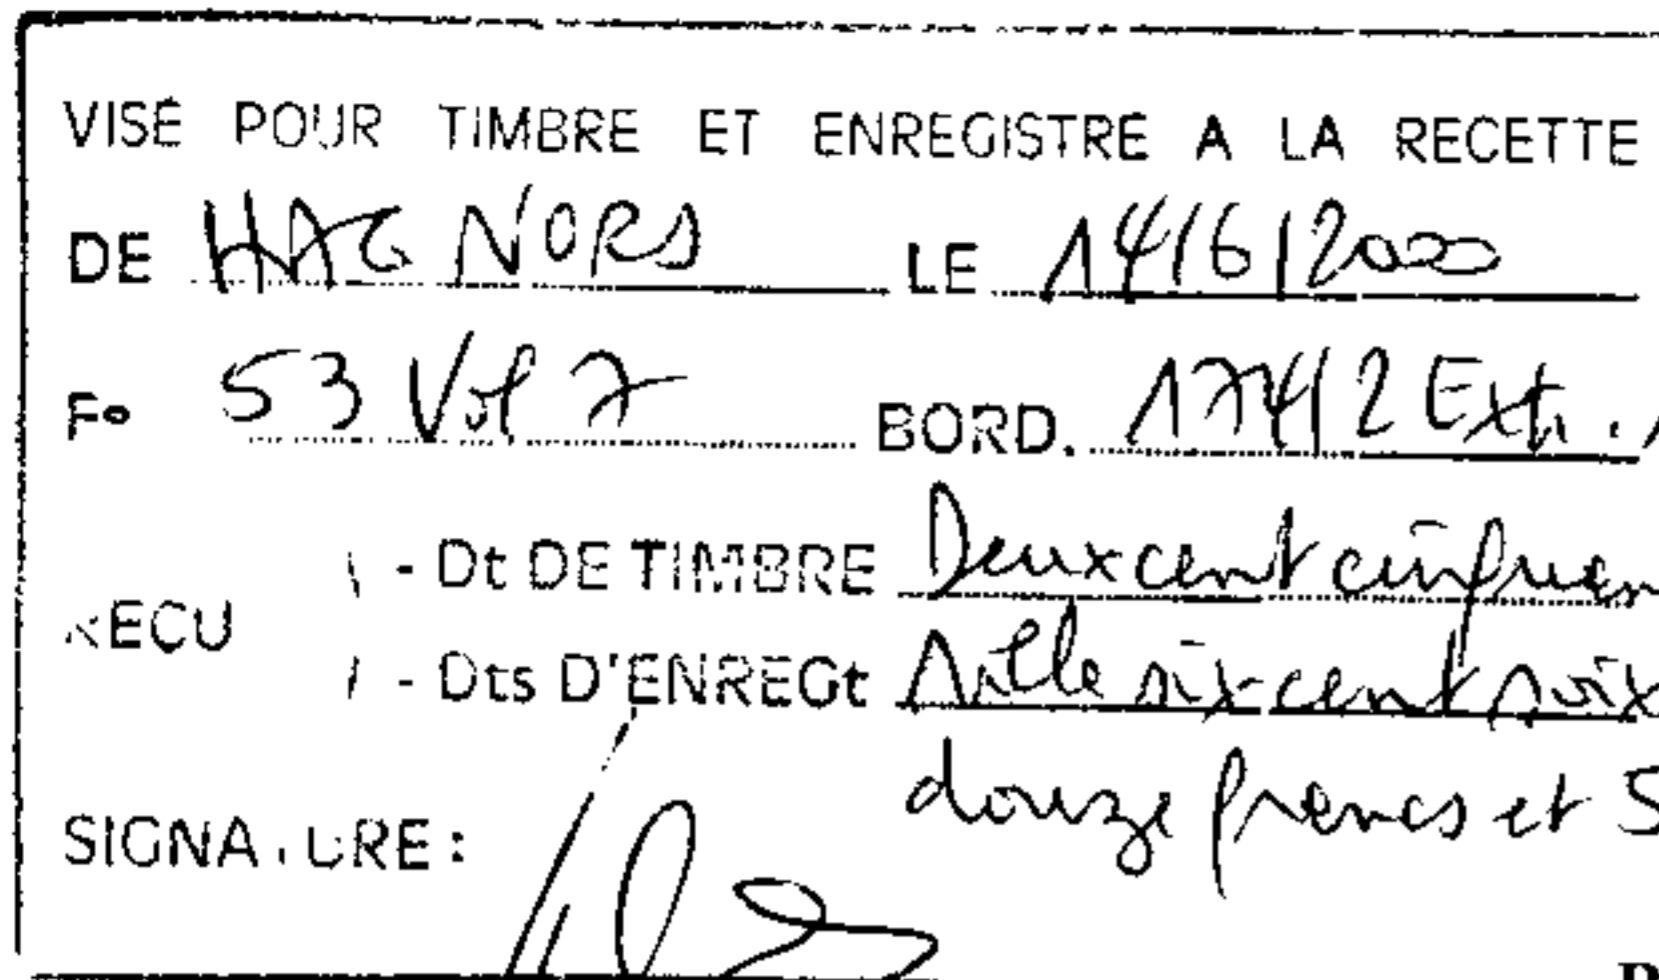 VISÉ POUR TIMBRE ET ENREGISTRÉ A LA RECETTE
DE HAG NORD LE 14/6/2000
F° 53 Vol 7 BORD. 174/2 Ext.
- Dt DE TIMBRE Deux cent cinquan
RECU
- Dts D'ENREGt Mille six cent soix
douze francs et 5
SIGNATURE: